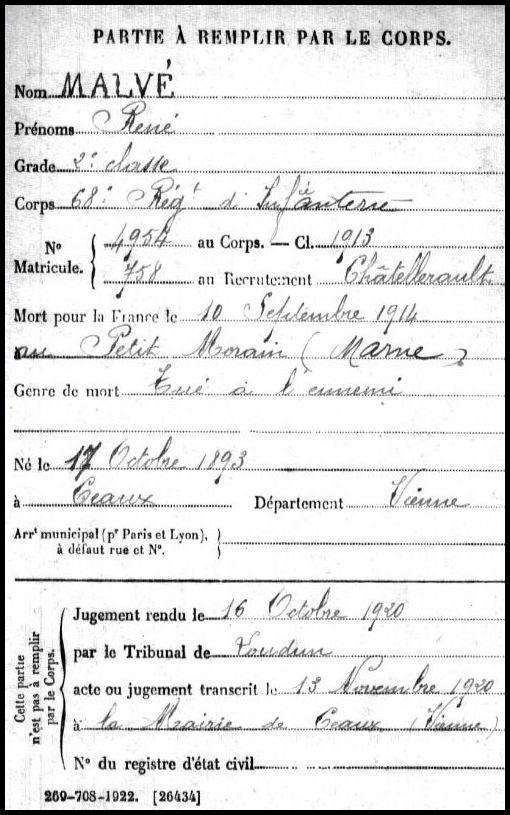 PARTIE À REMPLIR PAR LE CORPS.
Nom MALVÉ
Prénoms René
Grade 2e classe
Corps 68e Régt d'Infanterie
N° Matricule. { 4954 au Corps. — Cl. 1913
758 au Recrutement Châtellerault
Mort pour la France le 10 Septembre 1914
au Petit Morain (Marne)
Genre de mort Tué à l'ennemi
Né le 17 Octobre 1893
à Ceaux Département Vienne
Arrt municipal (pr Paris et Lyon), }
à défaut rue et N°.
Cette partie n'est pas à remplir par le Corps.
Jugement rendu le 16 Octobre 1920
par le Tribunal de Loudun
acte ou jugement transcrit le 13 Novembre 1920
à la Mairie de Ceaux (Vienne)
N° du registre d'état civil
269-708-1922. [26434]